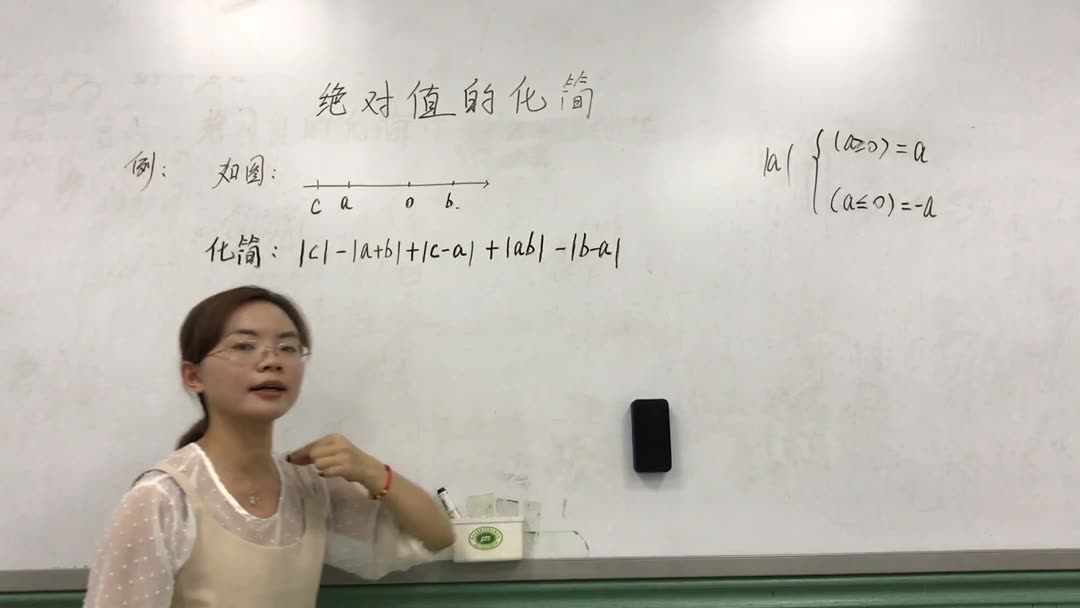 绝对值的化简
例： 如图：
c a 0 b.
化简： |c|-|a+b|+|c-a|+|ab|-|b-a|
|a| { (a≥0)=a
(a≤0)=-a